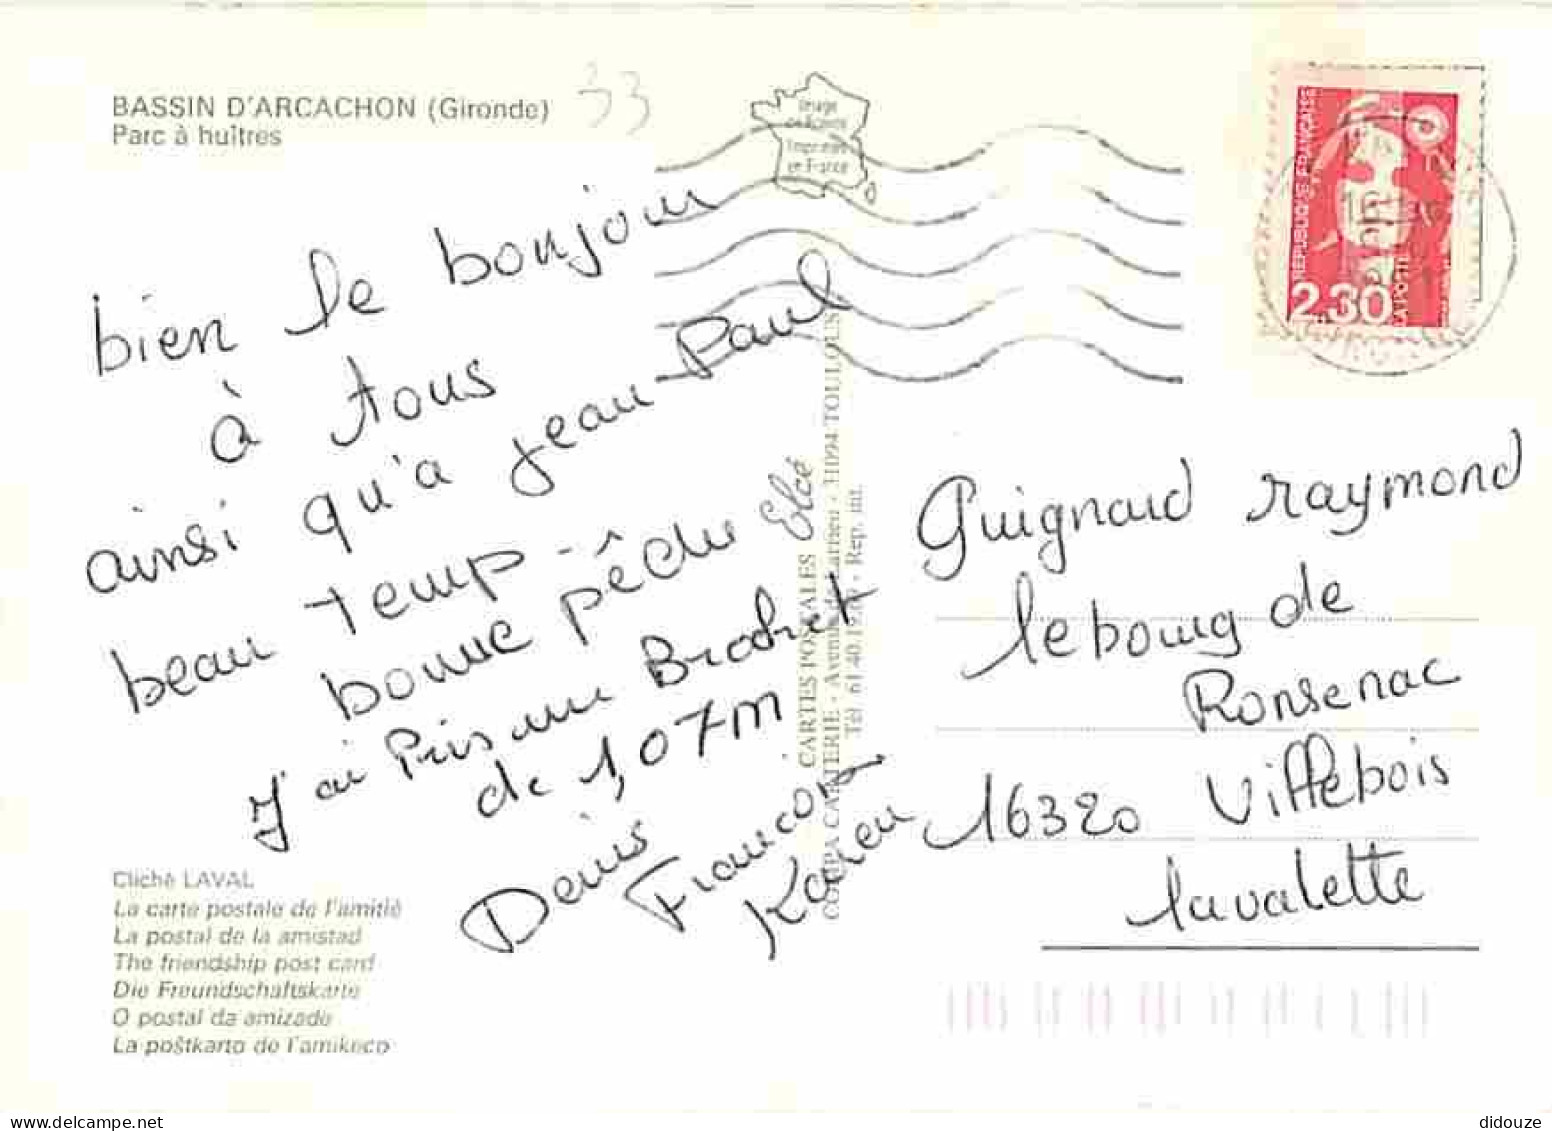 BASSIN D'ARCACHON (Gironde) 33
Parc à huîtres
Image
de France
Imprimée
en France
REPUBLIQUE FRANÇAISE
2.30
LA POSTE
bien le bonjour
à tous
ainsi qu'a jean Paul
beau temp -
bonne pêche
j'ai Pris une Brochet
de 1,07m
Denis
Francois
Karen
CARTES POSTALES
COMPA CARTERIE - Avenue de Larrieu - 31094 TOULOUSE
Tél. 61.40.19.09 - Rep. int.
Guignard raymond
le bourg de
Ronsenac
16320 Villebois
lavalette
Cliché LAVAL
La carte postale de l'amitié
La postal de la amistad
The friendship post card
Die Freundschaftskarte
O postal da amizade
La poŝtkarto de l'amikeco
didouze